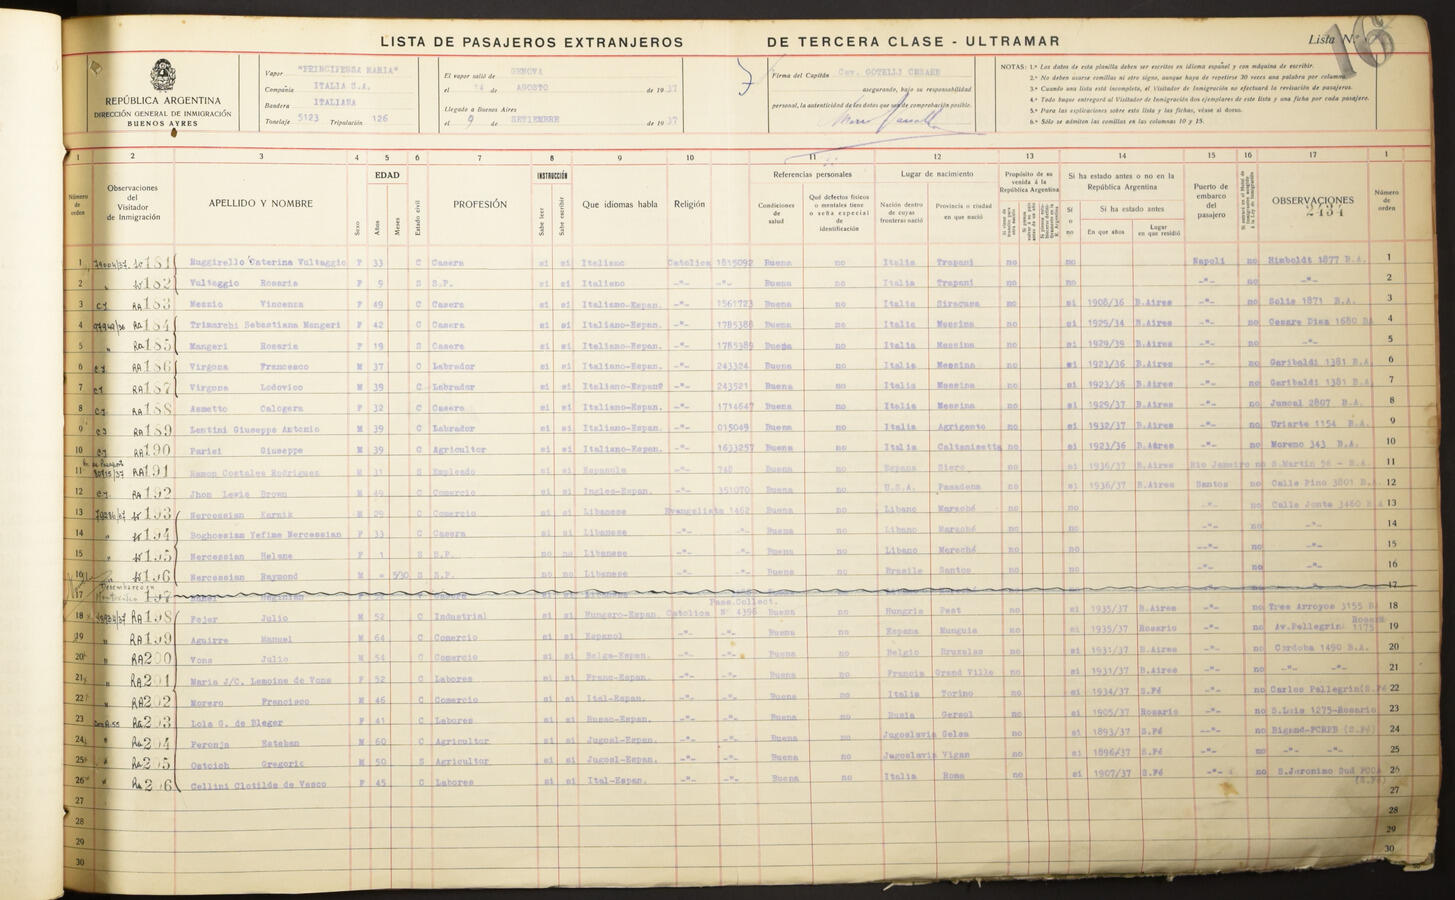 LISTA DE PASAJEROS EXTRANJEROS DE TERCERA CLASE - ULTRAMAR
Lista N.º
REPÚBLICA ARGENTINA
DIRECCIÓN GENERAL DE INMIGRACIÓN
BUENOS AYRES
Vapor "PRINCIPESSA MARIA"
Compañia ITALIA S.A.
Bandera ITALIANA
Tonelaje 5123 Tripulación 126
El vapor salió de GENOVA
el 14 de AGOSTO de 1937
Llegado a Buenos Aires
el 9 de SETIEMBRE de 1937
Firma del Capitán Cav. GOTELLI CESARE
asegurando, bajo su responsabilidad
personal, la autenticidad de los datos que son de comprobación posible.
NOTAS: 1.ª Los datos de esta planilla deben ser escritos en idioma español y con máquina de escribir.
2.ª No deben usarse comillas ni otro signo, aunque haya de repetirse 30 veces una palabra por columna.
3.ª Cuando una lista está incompleta, el Visitador de Inmigración no efectuará la revisación de pasajeros.
4.ª Todo buque entregará al Visitador de Inmigración dos ejemplares de esta lista y una ficha por cada pasajero.
5.ª Para las explicaciones sobre esta lista y las fichas, véase al dorso.
6.ª Sólo se admiten las comillas en las columnas 10 y 15.
1 2 3 4 5 6 7 8 9 10 11 12 13 14 15 16 17 1
Número de orden
Observaciones del Visitador de Inmigración
APELLIDO Y NOMBRE
Sexo
EDAD
Años
Meses
Estado civil
PROFESIÓN
INSTRUCCIÓN
Sabe leer
Sabe escribir
Que idiomas habla
Religión
Referencias personales
Condiciones de salud
Qué defectos físicos o mentales tiene o seña especial de identificación
Lugar de nacimiento
Nación dentro de cuyas fronteras nació
Provincia o ciudad en que nació
Propósito de su venida á la República Argentina
Si ha estado antes o no en la República Argentina
Sí o no
Si ha estado antes
En que años
Lugar en que residió
Puerto de embarco del pasajero
OBSERVACIONES
2434
Número de orden
1 181 Ruggirello Caterina Vultaggio F 33 C Casera si si Italiano Catolica 1815092 Buena no Italia Trapani no no Napoli no Himboldt 1877 B.A. 1
2 182 Vultaggio Rosaria F 9 S S.P. si si Italiano -"- -"- Buena no Italia Trapani no no -"- no -"- 2
3 RA 183 Mezzio Vincenza F 49 C Casera si si Italiano-Espan. -"- 1561723 Buena no Italia Siracusa no si 1908/36 B.Aires -"- no Solis 1871 B.A. 3
4 RA 184 Trimarchi Sebastiana Mangeri F 42 C Casera si si Italiano-Espan. -"- 1785388 Buena no Italia Messina no si 1929/34 B.Aires -"- no Cesare Diaz 1680 BA 4
5 RA 185 Mangeri Rosaria F 19 S Casera si si Italiano-Espan. -"- 1785389 Buena no Italia Messina no si 1929/39 B.Aires -"- no -"- 5
6 RA 186 Virgona Francesco M 37 C Labrador si si Italiano-Espan. -"- 243324 Buena no Italia Messina no si 1923/36 B.Aires -"- no Garibaldi 1381 B.A. 6
7 RA 187 Virgona Lodovico M 39 C Labrador si si Italiano-Espan -"- 243521 Buena no Italia Messina no si 1923/36 B.Aires -"- no Garibaldi 1381 B.A. 7
8 RA 188 Asmetto Calogera F 32 C Casera si si Italiano-Espan. -"- 1714647 Buena no Italia Messina no si 1929/37 B.Aires -"- no Juncal 2807 B.A. 8
9 RA 189 Lentini Giuseppe Antonio M 39 C Labrador si si Italiano-Espan. -"- 015049 Buena no Italia Agrigento no si 1932/37 B.Aires -"- no Uriarte 1154 B.A. 9
10 RA 190 Parisi Giuseppe M 39 C Agricultor si si Italiano-Espan. -"- 1633257 Buena no Italia Caltanisetta no si 1923/36 B.Aires -"- no Moreno 343 B.A. 10
11 RA 191 Ramon Costales Rodriguez M 31 S Empleado si si Espanola -"- 748 Buena no Espana Siero no si 1936/37 B.Aires Rio Janeiro no S.Martin 56 - B.A. 11
12 RA 192 Jhon Lewis Brown M 49 C Comercio si si Ingles-Espan. -"- 351070 Buena no U.S.A. Pasadena no si 1936/37 B.Aires Santos no Calle Pino 3801 B.A. 12
13 193 Nercessian Karnik M 29 C Comercio si si Libanese Evangelista 1462 Buena no Libano Marache no no -"- no Calle Jonte 3460 B.A 13
14 194 Boghossian Yefime Nercessian F 33 C Casera si si Libanese -"- -"- Buena no Libano Marache no no -"- no -"- 14
15 195 Nercessian Helene F 1 S S.P. no no Libanese -"- -"- Buena no Libano Mereche no no -"- no -"- 15
16 196 Nercessian Raymond M - S S.P. no no Libanese -"- -"- Buena no Brasile Santos no no -"- no -"- 16
17 197 17
18 RA 198 Fejer Julio M 52 C Industrial si si Hungaro-Espan. Catolica Pasa.Collect. Nº 4396 Buena no Hungria Pest no si 1935/37 B.Aires -"- no Tres Arroyos 3155 B 18
19 RA 199 Aguirre Manuel M 64 C Comercio si si Espanol -"- -"- Buena no Espana Munguia no si 1935/37 Rosario -"- no Av.Pellegrini 1175 Rosario 19
20 RA 200 Vons Julio M 54 C Comercio si si Belga-Espan. -"- -"- Buena no Belgio Bruxelas no si 1931/37 B.Aires -"- no Cordoba 1490 B.A. 20
21 RA 201 Maria J/C. Lemoine de Vons F 52 C Labores si si Franc-Espan. -"- -"- Buena no Francia Grand Ville no si 1931/37 B.Aires -"- no -"- 21
22 RA 202 Morero Francisco M 46 C Comercio si si Ital-Espan. -"- -"- Buena no Italia Torino no si 1934/37 S.Fé -"- no Carlos Pellegrini(S.Fé 22
23 RA 203 Lola G. de Bleger F 41 C Labores si si Russo-Espan. -"- -"- Buena no Rusia Gersol no si 1905/37 Rosario -"- no S.Luis 1275-Rosario 23
24 RA 204 Peronja Esteban M 60 C Agricultor si si Jugosl-Espan. -"- -"- Buena no Jugoslavia Gelsa no si 1893/37 S.Fé -"- no Bigand-FCRPB (S.Fé) 24
25 RA 205 Ostoich Gregorio M 50 S Agricultor si si Jugosl-Espan. -"- -"- Buena no Jugoslavia Vigan no si 1896/37 S.Fé -"- no -"- 25
26 RA 206 Cellini Clotilde de Vasco F 45 C Labores si si Ital-Espan. -"- -"- Buena no Italia Roma no si 1907/37 S.Fé -"- no S.Jeronimo Sud FCCA (S.Fé) 26
27 27
28 28
29 29
30 30